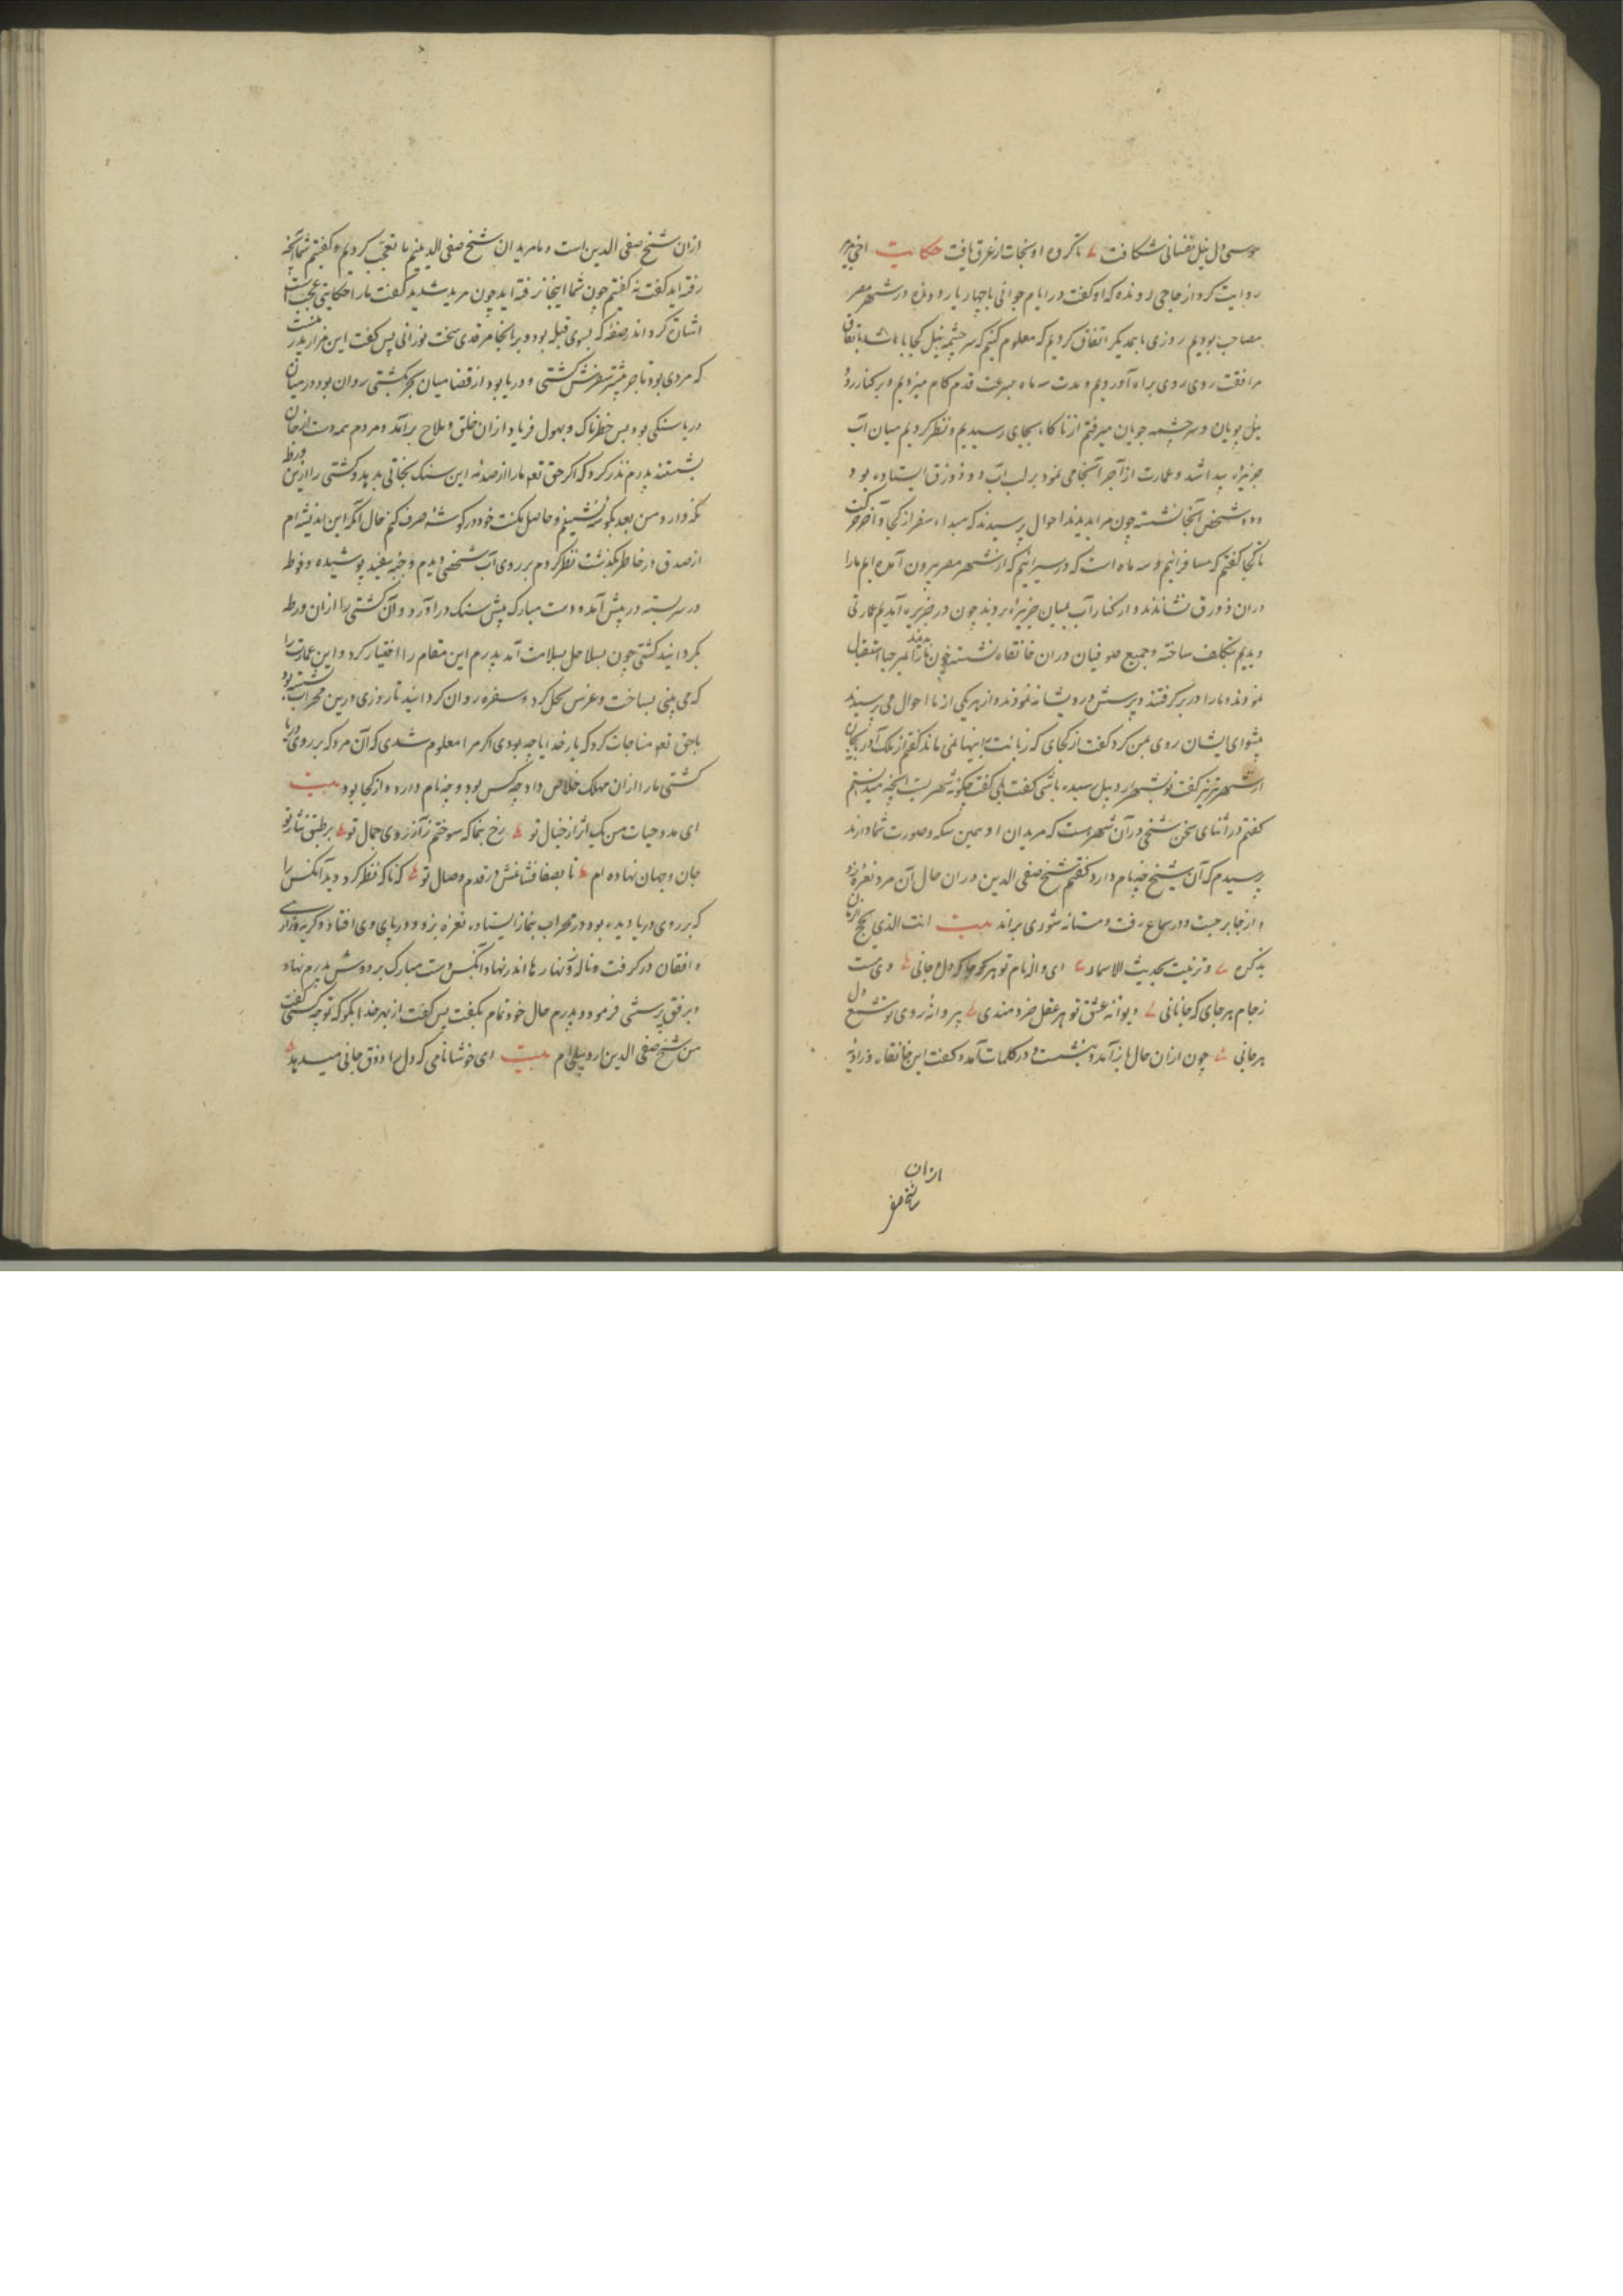 موسی دل نیل نفسانی شکافت تا کرده او نجات از غرق یافت حکایت اخی میر
روایت کرد از حاجی رونده که او گفت در ایام جوانی با چهار یار رونده در شهر مصر
مصاحب بودیم روزی با همدیگر اتفاق کردیم که معلوم کنیم که سرچشمه نیل کجا باشد باتفاق
مرافقت روی براه آوردیم و مدت سه ماه بسرعت قدم کام میزدیم و بر کنار رود
نیل پویان و سرچشمه جویان میرفتم از ناکاه بجای رسیدیم و نظر کردیم میان آب
جزیرۀ پیدا شد و عمارت از آجر آنجا می نمود بر لب آب و دو زورق ایستاده بود و
دو شخص آنجا نشسته چون ما را بدیدند احوال پرسیدند که مبداء سفر از کجا و آخر حرکت
تا کجا گفتم که مسافرانیم و سه ماه است که در سیرانیم که از شهر مصر بیرون آمده ایم ما را
در آن زورق نشاندند و از کنار آب بمیان جزیرۀ بردند چون در جزیره آمدیم عمارتی
دیدیم بتکلف ساخته و جمیع صوفیان در آن خانقاه نشسته چون ما را بدیدند بمرحبا استقبال
نمودند و ما را در بر کرفتند و پرسش درویشانه نمودند و از هر یکی از ما احوال می پرسیدند
پیشوای ایشان روی بمن کرد گفت از کجای که زبانت باینها نمی ماند گفتم از ملک آذربیجان
از شهر تبریز گفت تو بشهر اردبیل رسیده باشی گفت بلی گفت چگونه شهریست آنچه میدانستم
گفتم در اثنای سخن شیخی در آن شهر است که مریدان او همین سکه و صورت شما دارند
پرسیدم که آن شیخ چه نام دارد گفتم شیخ صفی الدین در آن حال آن مرد نعرۀ زد
و از جا برجست و در سماع رفت و مستانه شوری براند بیت انت الذی
بذکره و تزینت بحدیث الاسماء ای واله نام تو هر کو جا که دل و جانی وی مست
ز جام هر جای که جانانی دیوانه عشق تو هر عقل خردمندی پروانۀ روی تو شمع دل
هر جانی چون از آن حال باز آمد و بنشست و در کلمات آمد و گفت این خانقاه و زاویه
ازان
شیخ صفی
از آن شیخ صفی الدین است و ما مریدان شیخ صفی الدینیم ما تعجب کردیم و گفتیم شما آنجا
رفته اید گفت نه گفتیم چون شما اینجا نرفته اید چون مرید شدید گفت ما را حکایتی عجب است
اشارت کرد اندر صفه که بسوی قبله بود و بر آنجا مرقدی سخت نورانی پس گفت این مزار پدر منست
که مردی بود تاجر بیشتر سفرش کشتی و دریا بود از قضا میان بحر بکشتی روان بود در میان
دریا سنگی بود بس خطرناک و بهول فریاد از آن خلق و ملاح برآمد و مردم همه دست از جان
بشستند پدرم نذر کرد که اگر حق تعه ما را از صدمه این سنگ نجاتی بدهد و کشتی را از این ورطه
نگه دارد من بعد بگوشه نشینم و حاصل مکنت خود در گوشه صرف کنم حال آنکه این اندیشه ام
از صدق در خاطر بگذشت نظر کردم بر روی آب شخصی دیدم و جبه سفید پوشیده و فوطه
در سر بسته در پیش آمد و دست مبارک پیش سنگ درآورد و آن کشتی را از آن ورطه
بگردانید کشتی چون بساحل بسلامت آمد پدرم این مقام را اختیار کرد و این عمارت را
که می بینی بساخت و غرس نخل کرد و سفره روان کردانید تا روزی درین محراب نشسته بود
با حق تعه مناجات کرد که بار خدایا چه بودی اگر مرا معلوم شدی که آن مرد که بر روی دریا
کشتی ما را از آن مهلک خلاص داد چه کس بود و چه نام دارد و از کجا بود بیت
ای مدد حیات من یک اثر از خیال تو رخ بنما که سوختم ز آرزوی جمال تو بر طبق نثار تو
جان و جهان نهاده ام تا بصفا فشانمش در قدم وصال تو که ناکه نظر کرد دید آنکس را
که بر روی دریا دیده بود در محراب بنماز ایستاده نعرۀ بزد و در پای وی افتاد و گریه و زاری
و افغان در گرفت و ناله و آنها رها اندر نهاد آنکس دست مبارک بر دوش پدرم نهاد
و برفق پرسشی فرمود و پدرم حال خود تمام بگفت پس گفت از بهر خدا بگو که تو چه کسی گفت
من شیخ صفی الدین اردبیلی ام بیت ای خوشا نامی که دل را ذوق جانی میدهد